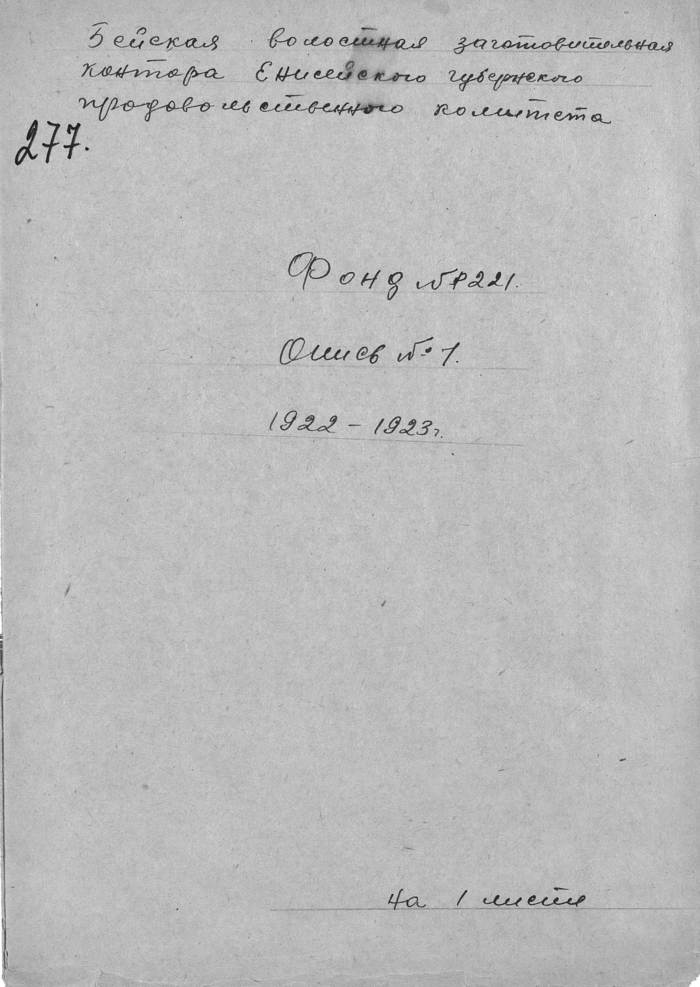 Бейская волостная заготовительная
контора Енисейского губернского
продовольственного комитета
277.
Фонд №Р221.
Опись №1.
1922 – 1923г.
на 1 листе